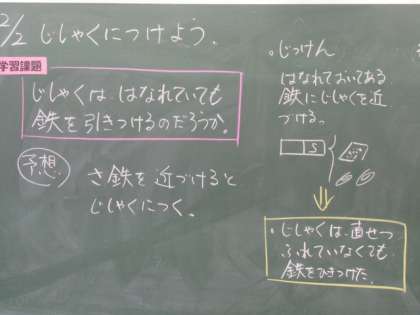 2/2 じしゃくにつけよう.
学習課題
じしゃくは はなれていても
鉄を引きつけるのだろうか。
予想
さ鉄を近づけると
じしゃくにつく。
。じっけん
はなれておいてある
鉄にじしゃくを近
づける。
S
。じしゃくは、直せつ
ふれていなくても
鉄をひきつけた。